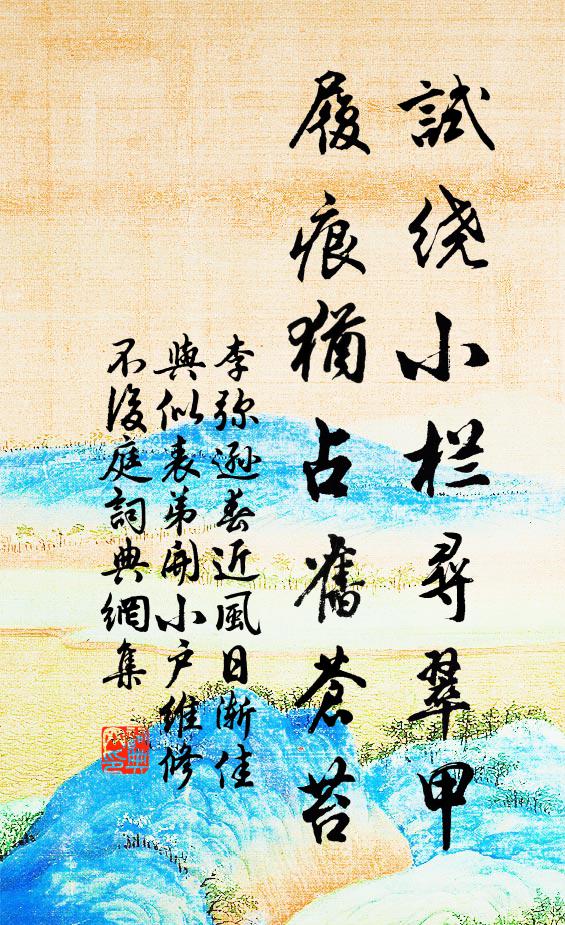 試绕小栏尋翠甲
履痕猶占舊蒼苔
李弥遜春近風日渐佳
與似表弟開小户維修
不後庭詞典網集